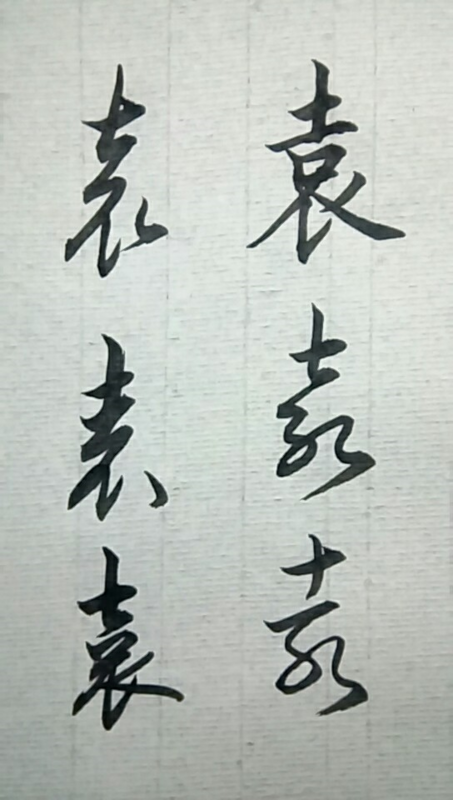 袁袁袁
袁袁袁